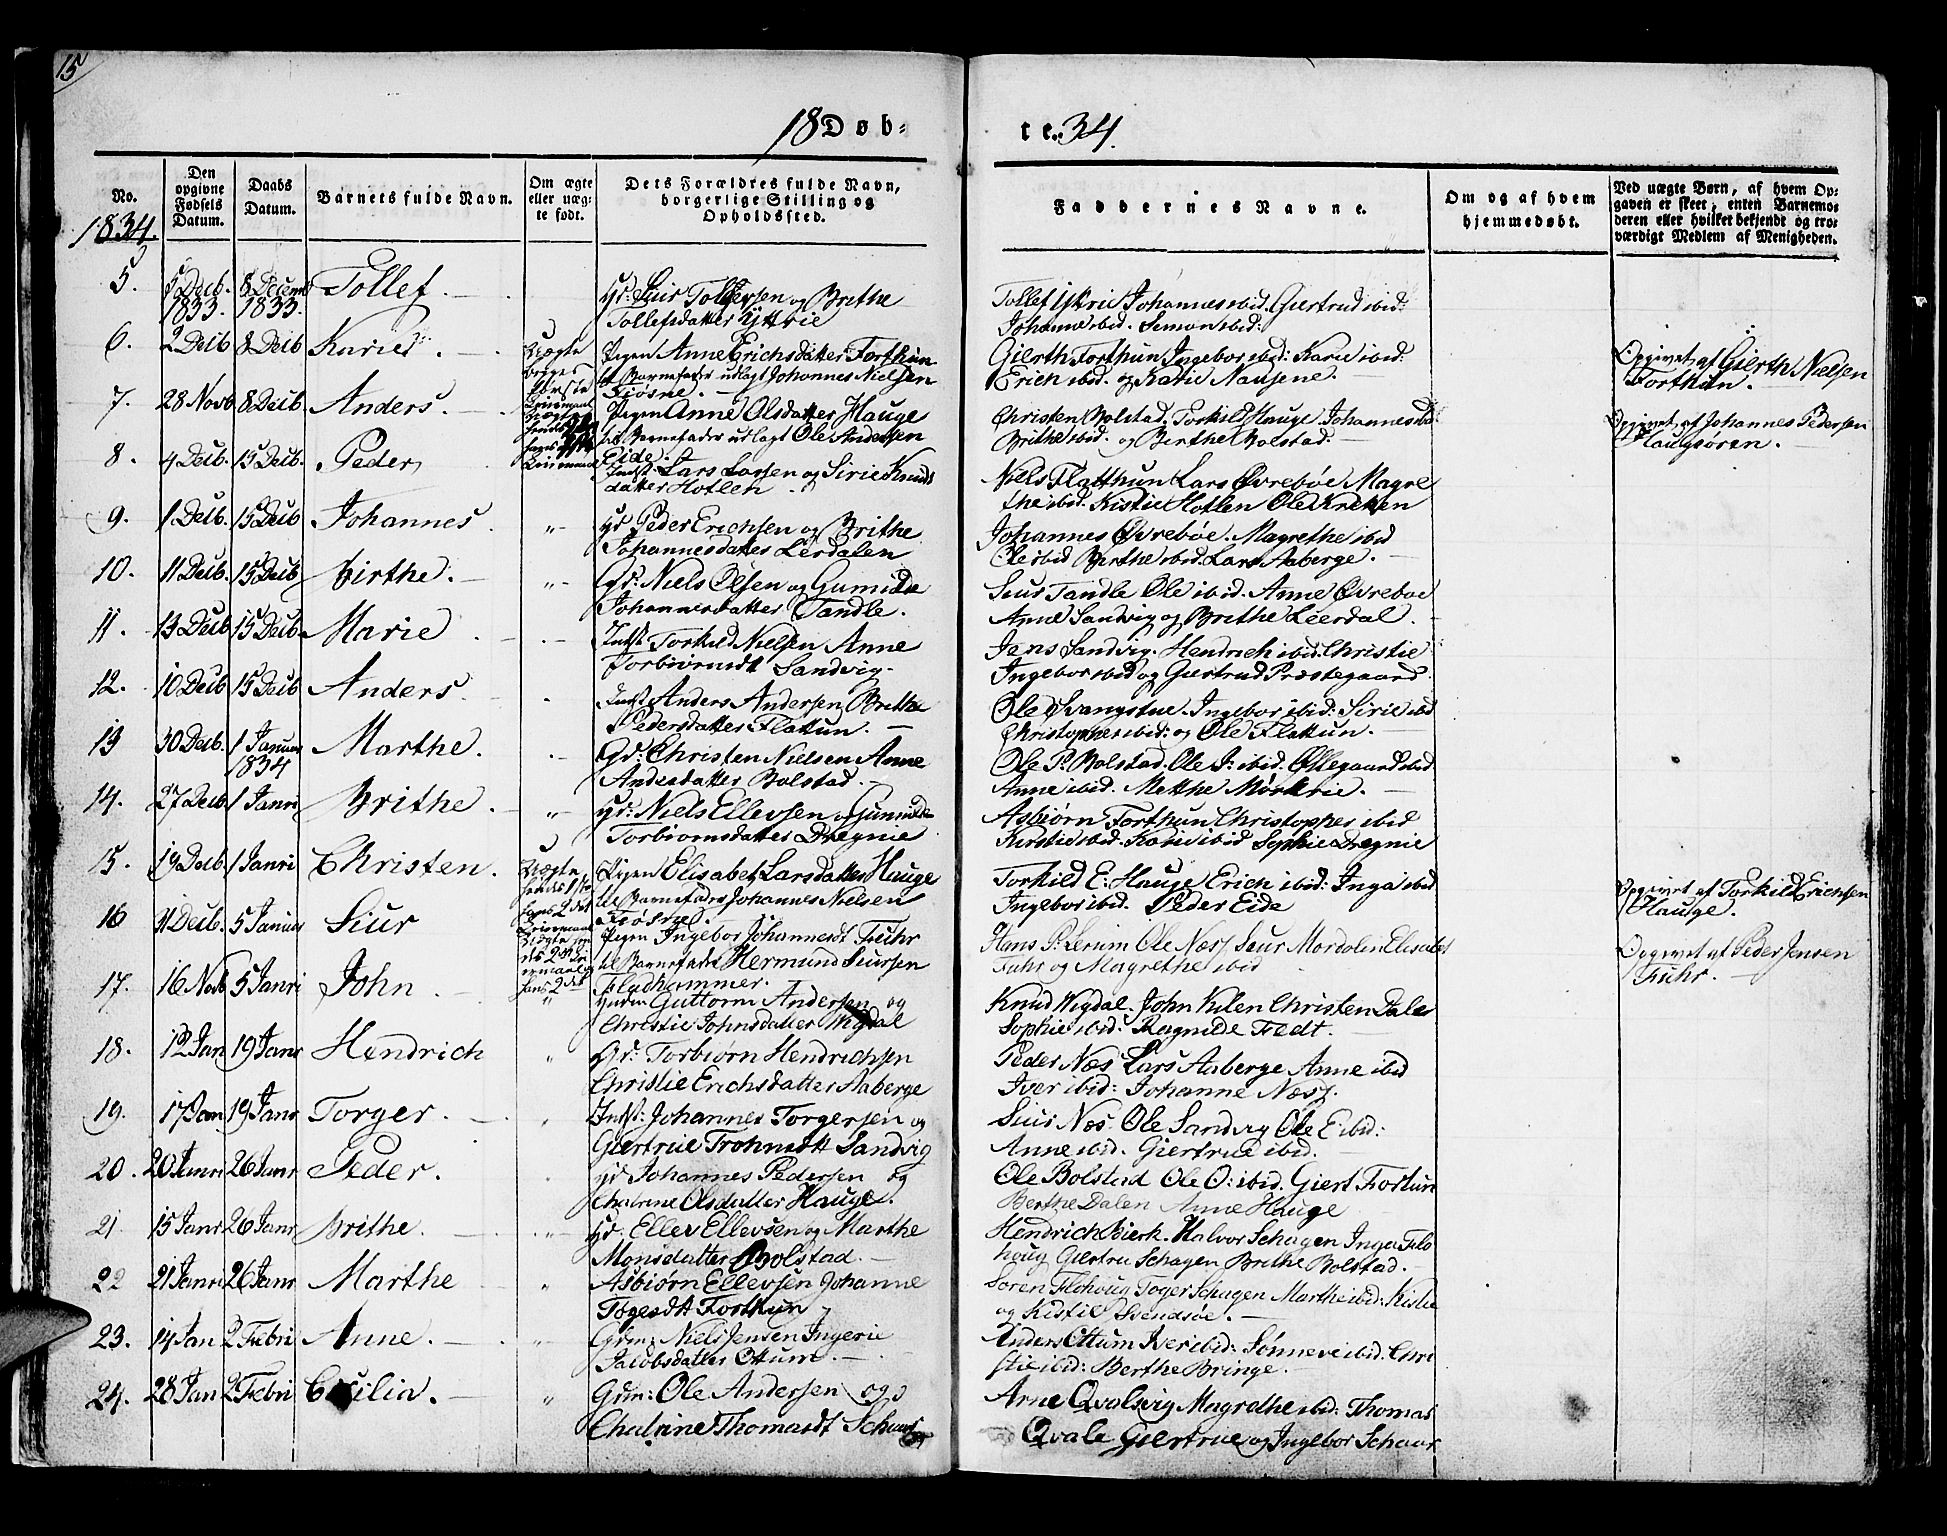 15
18 Døb=
te. 34.
No.
1834.
Den opgivne Fødsels Datum.
Daabs Datum.
Barnets fulde Navn.
Om ægte eller uæg= te født.
Dets Forældres fulde Navn, borgerlige Stilling og Opholdssted.
Faddernes Navne.
Om og af hvem hjemmedøbt.
Ved uægte Børn, af hvem Op= gaven er skeet, enten Barnemo= deren eller hvilket bekjendt og tro= værdigt Medlem af Menigheden.
5. 5 Decb. 1833. 8 Decemb 1833. Tollef. Gr: Siur Tollefsen og Brithe
Tollefsdatter Yttrie
Tollef Yttrie Johannes ibid. Giertrud ibid:
Johanne ibid. Simon ibid:
6. 2 Decb 8 Decb Karie. Uægte Pigen Anne Erichsdatter Forthun
til Barnefader udlagt Johannes Nielsen
Fiøsne.
Gierth Forthun Ingebor ibid: Karie ibid:
Erich ibid. og Karie Nausene.
Opgivet af Gierth Nielsen
Forthun.
7. 28 Novb 8 Decb Anders. Pigen Anne Olsdatter Hauge
til Barnefader udlagt Ole Andersen
Eide.
Christen Bolstad. Torkild Hauge Johannes ibid
Brithe ibid. og Berthe Bolstad.
Opgivet af Johannes Pedersen
Haugsøren.
8. 4 Decb. 15 Decb. Peder Inds. Lars Larsen og Sirie Knuds
datter Hotlen
Niels Flatthun Lars Øvrebøe Magre
the ibid. Kistie Hotlen Ole Kreken
9. 1 Decb. 15 Decb Johannes. Gr Peder Erichsen og Brithe
Johannesdatter Lerdalen
Johannes Øvrebøe. Magrethe ibid
Ole ibid Berthe ibid. Lars Aaberge.
10. 11 Decb. 15 Decb Birthe. Gr: Niels Olsen og Gunilde
Johannesdatter Tandle.
Siur Tandle Ole ibid. Anne Øvreboe
Anne Sandvig og Brithe Leerdal.
11. 13 Decb 15 Decb. Marie Inst: Torkild Nielsen Anne
Torbiörnsdt Sandvig.
Jens Sandvig. Hendrich ibid. Christie
Ingebor ibid og Giertrud Præstegaard
12. 10 Decb 15 Decb Anders. Inst Anders Andersen Brithe
Pedersdatter Flattun.
Ole Svangstue. Ingebor ibid: Sirie ibid
Christopher ibid: og Ole Flattun.
13 30 Decb. 1 Januar 1834 Marthe. Gr: Christen Nielsen Anne
Andersdatter Bolstad.
Ole P. Bolstad. Ole J: ibid. Ollegaard ibid
Anne ibid. Metthe Mørkrie.
14. 27 Decb 1 Janri Brithe. Gr: Niels Ellevsen og Gunilde
Torbiornsdatter Drægnie
Asbiørn Forthun Christopher ibid
Kirstie ibid. Karie ibid Sophie Drægnie
15. 19 Decb 1 Janri Christen. Uægte Pigen Elisabet Larsdatter Hauge
til Barnefader Johannes Nielsen
Fiøsne.
Torkild E: Hauge Erich ibid: Inga ibid
Ingebor ibid. Peder Eide
Opgivet af Torkild Erichsen
Hauge.
16 11 Decb. 5 Januar Siur Pigen Ingebor Johannesdt Fuhr
til Barnefader Hermund Siursen
Fladhammer.
Hans P. Lerum Ole Næss Siur Mordalen Elisabet
Fuhr og Magrethe ibid
Opgivet af Peder Jensen
Fuhr.
17. 16 Novb 5 Janri John Guttorm Andersen og
Christie Johnsdatter Wigdal
Knud Wigdal. John Kilen Christen Dale
Sophie ibid. Ragnilde Fredt.
18. 12 Jan 19 Janr Hendrich Gr: Torbiørn Hendrichsen
Christie Erichsdatter Aaberge
Peder Næs Lars Aaberge Anne ibid
Iver ibid: Johanne Næss.
19. 17 Jan 19 Janr Torger. Inst: Johannes Torgersen og
Giertrue Trohnsdtt Sandvig
Siur Næs. Ole Sandvig Ole E ibid:
Anne ibid. Giertrue ibid.
20. 20 Janri 26 Janr Peder. Gr Johannes Pedersen og
Chatrine Olsdatter Hauge.
Ole Bolstad Ole O: ibid. Giert Fortun
Berthe Dalen Anne Hauge
21. 15 Janr 26 Janr Brithe. Gr. Ellev Ellevsen og Marthe
Monsdatter Bolstad.
Hendrich Bierk. Halvor Schagen Inga Flo
houg Giertru Schagen Brithe Bolstad.
22 21 Janri 26 Janr Marthe Asbiørn Ellevsen Johanne
Togersdt Forthun
Søren Flohoug Toger Schagen Marthe ibid: Kistie
og Kistie Svendsøe.
23. 14 Jan 2 Febri Anne. Grdm: Niels Jensen Ingerie
Jacobsdatter Ottum.
Anders Ottum Iver ibid: Sønneve ibid. Chri
stie ibid: Berthe Bringe.
24. 28 Jan 2 Febri Cicilia. Grdm: Ole Andersen og
Chatrine Thomasdt Schaar
Arne Qvalsvig Magrethe ibid: Thomas
Qvale Giertrue og Ingebor Schaar